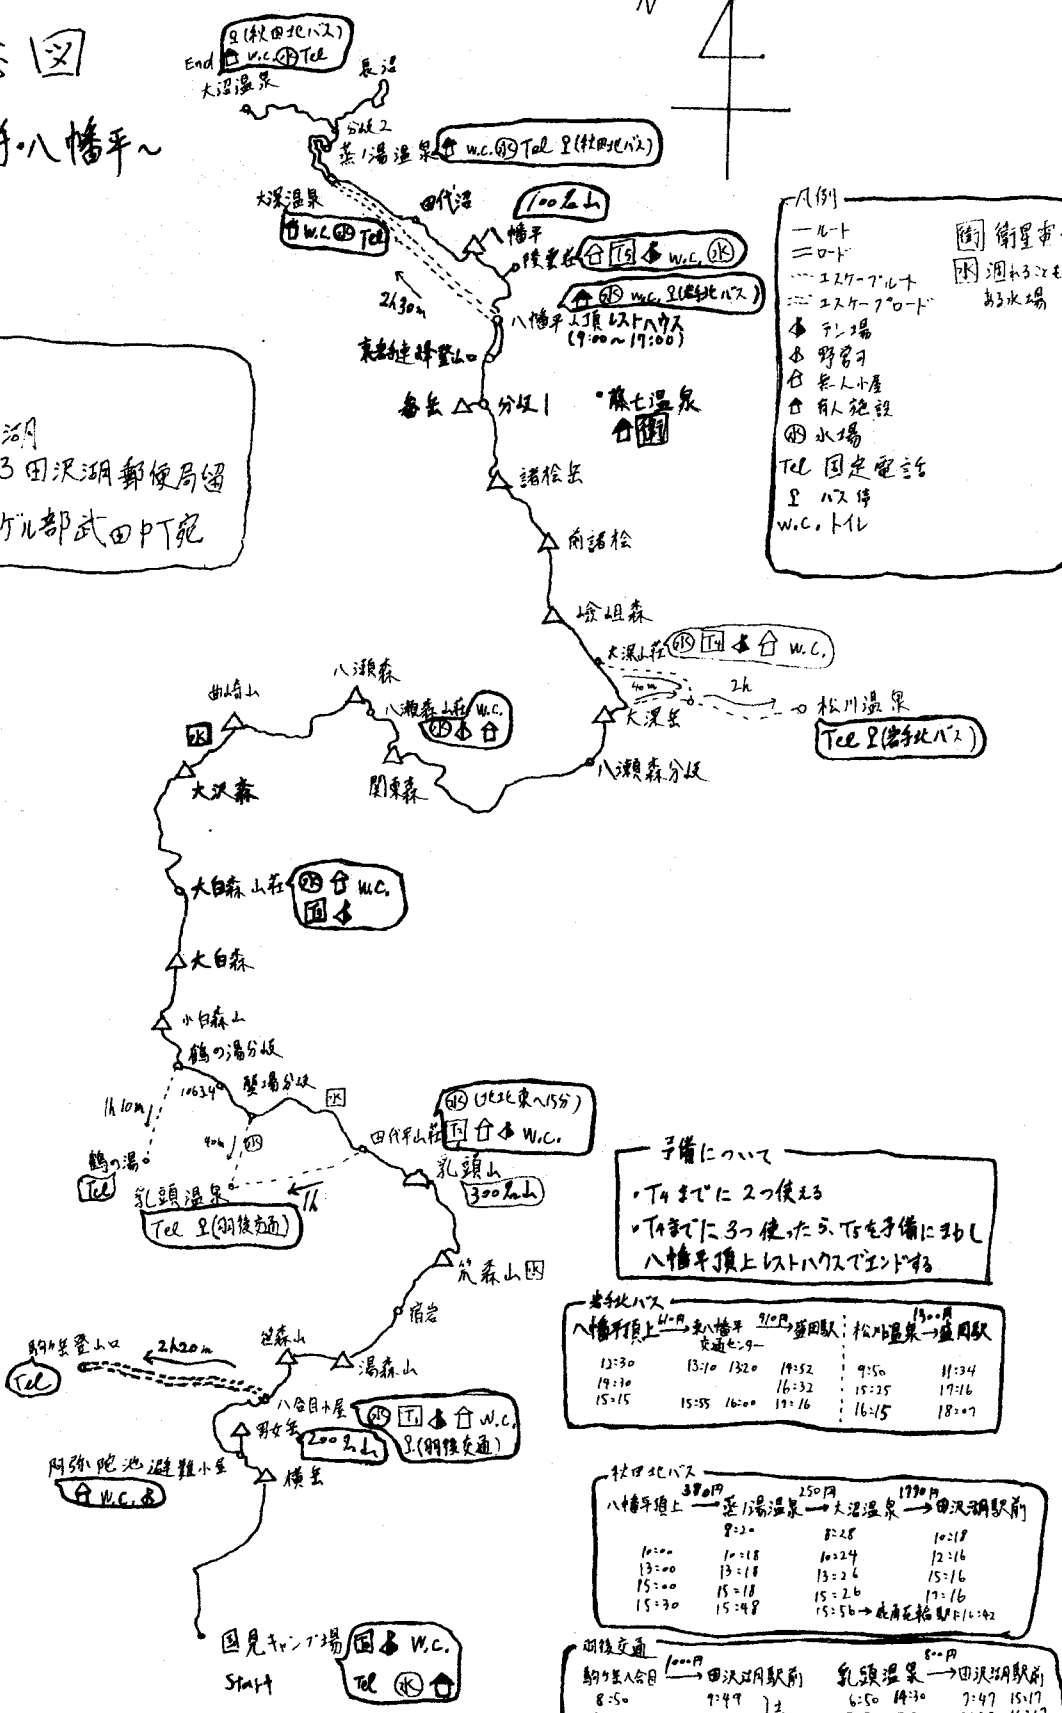 図
八幡平～
N
♀(秋田北バス)
W.C. 水 Tel
End
大沼温泉
長沼
分岐2
蒸ノ湯温泉
W.C. 水 Tel ♀(秋田北バス)
大深温泉
W.C. 水 Tel
田代沼
100名山
八幡平
陵雲荘
T5 W.C. 水
水 W.C. ♀(岩手北バス)
2h30m
八幡平山頂レストハウス
(9:00～17:00)
裏岩手連峰登山口
畚岳
分岐1
藤七温泉
衛
諸桧岳
前諸桧
嶮岨森
大深山荘
水 T4 W.C.
40m
2h
松川温泉
Tel ♀(岩手北バス)
大深岳
八瀬森分岐
八瀬森
八瀬森山荘
W.C.
水
関東森
曲崎山
水
大沢森
大白森山荘
水 W.C.
T3
大白森
小白森山
鶴の湯分岐
1063.4
蟹場分岐
水
1h10m
40m
水
鶴の湯
Tel
乳頭温泉
Tel ♀(羽後交通)
1h
田代平山荘
水 (北北東へ15分)
T2 W.C.
乳頭山
300名山
笊森山 水
宿岩
湯森山
笹森山
駒ヶ岳登山口
Tel
2h20m
八合目小屋
水 T1 W.C.
♀(羽後交通)
男女岳
200名山
阿弥陀池避難小屋
W.C.
横岳
国見キャンプ場
Start
W.C.
Tel 水
凡例
ルート
ロード
エスケープルート
エスケープロード
テン場
野営可
無人小屋
有人施設
水 水場
Tel 固定電話
♀ バス停
W.C. トイレ
衛 衛星電
水 涸れることも
ある水場
湖
3 田沢湖郵便局留
ゲル部武田PT宛
予備について
・T4までに2つ使える
・T4までに3つ使ったら、T5を予備にまわし
八幡平頂上レストハウスでエンドする
岩手北バス
八幡平頂上 610円→ 東八幡平交通センター 910円→ 盛岡駅 松川温泉 1300円→ 盛岡駅
12:30 13:10 13:20 14:52 9:50 11:34
14:30 16:32 15:25 17:16
15:15 15:55 16:00 17:16 16:15 18:07
秋田北バス
八幡平頂上 380円→ 蒸ノ湯温泉 250円→ 大沼温泉 1990円→ 田沢湖駅前
8:20 8:28 10:18
10:00 10:18 10:24 12:16
13:00 13:18 13:26 15:16
15:00 15:18 15:26 17:16
15:30 15:48 15:56→鹿角花輪駅 16:42
羽後交通
駒ケ岳八合目 1000円→ 田沢湖駅前 乳頭温泉 800円→ 田沢湖駅前
8:50 9:49 6:50 14:30 7:47 15:17